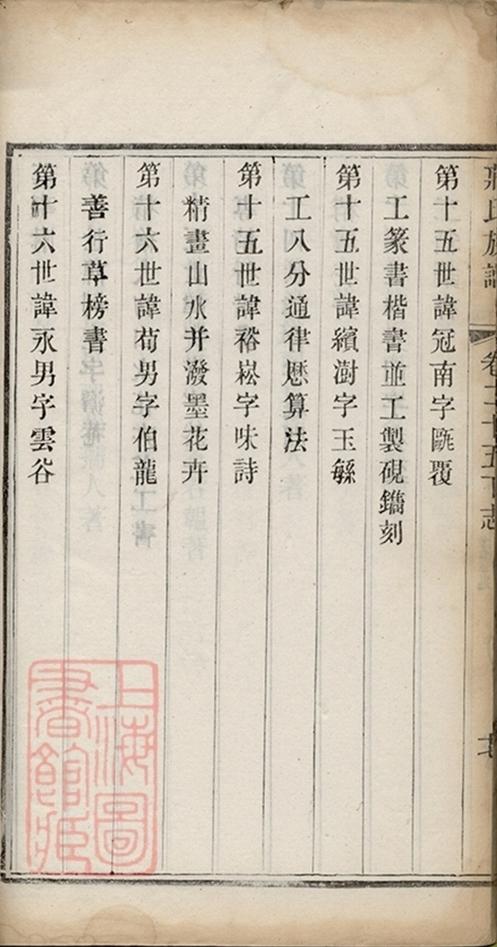 氏族譜 卷二十五下 志
第十五世諱冠南字甌覆
工篆書楷書並工製硯鐫刻
第十五世諱繽澍字玉繇
工八分通律厯算法
第十五世諱裕崧字味詩
精畫山水并潑墨花卉
第十六世諱荀男字伯龍
善行草榜書
第十六世諱永男字雲谷
上海圖書館藏